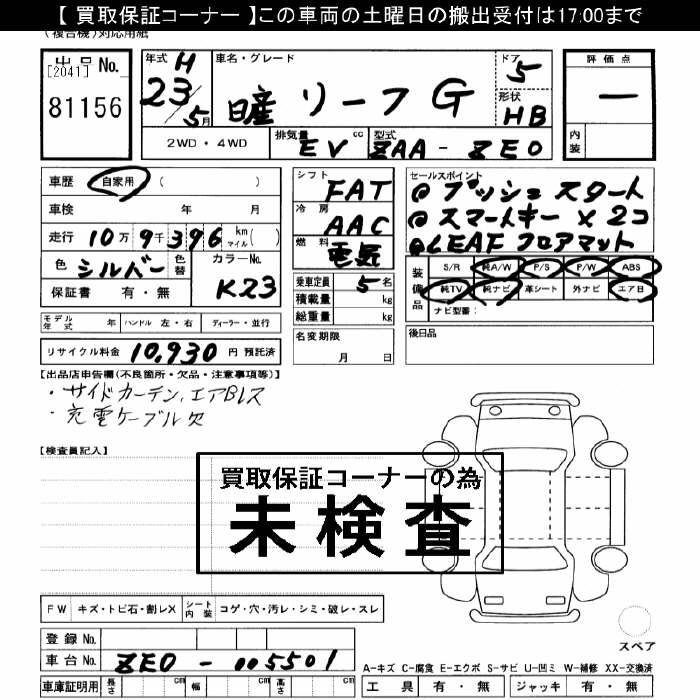 【 買取保証コーナー 】この車両の土曜日の搬出受付は17:00まで
(複合機)対応用紙
出品 No.
[2041]
81156
年式 H
23/5月
車名・グレード
日産 リーフ G
ドア
5
形状
HB
評価点
—
内装
2WD・4WD
排気量 cc
EV
型式
ZAA - ZE0
車歴 自家用 ( )
車検 年 月
走行 10万 9千 396 km マイル ( )
色 シルバー 色替
カラーNo.
K23
保証書 有・無
シフト
FAT
冷房
AAC
燃料
電気
乗車定員 5 名
積載量 kg
総重量 kg
セールスポイント
@プッシュスタート
@スマートキー×2コ
@LEAFフロアマット
装備品
S/R 純A/W P/S P/W ABS
純TV 純ナビ 革シート 外ナビ エアB
ナビ型番:
モデル年式 年 ハンドル 左・右 ディーラー・並行
名変期限
月 日
後日品
リサイクル料金 10,930 円 預託済
【出品店申告欄(不良箇所・欠品・注意事項等)】
・サイドカーテン,エアBレス
・充電ケーブル欠
【検査員記入】
買取保証コーナーの為
未検査
FW キズ・トビ石・割レX シート内装 コゲ・穴・汚レ・シミ・破レ・スレ
登録 No.
車台 No. ZE0 - 005501
車庫証明用 長さ cm 幅 cm 高さ cm
スペア
A-キズ C-腐食 E-エクボ S-サビ U-凹ミ W-補修 XX-交換済
工具 有・無 ジャッキ 有・無